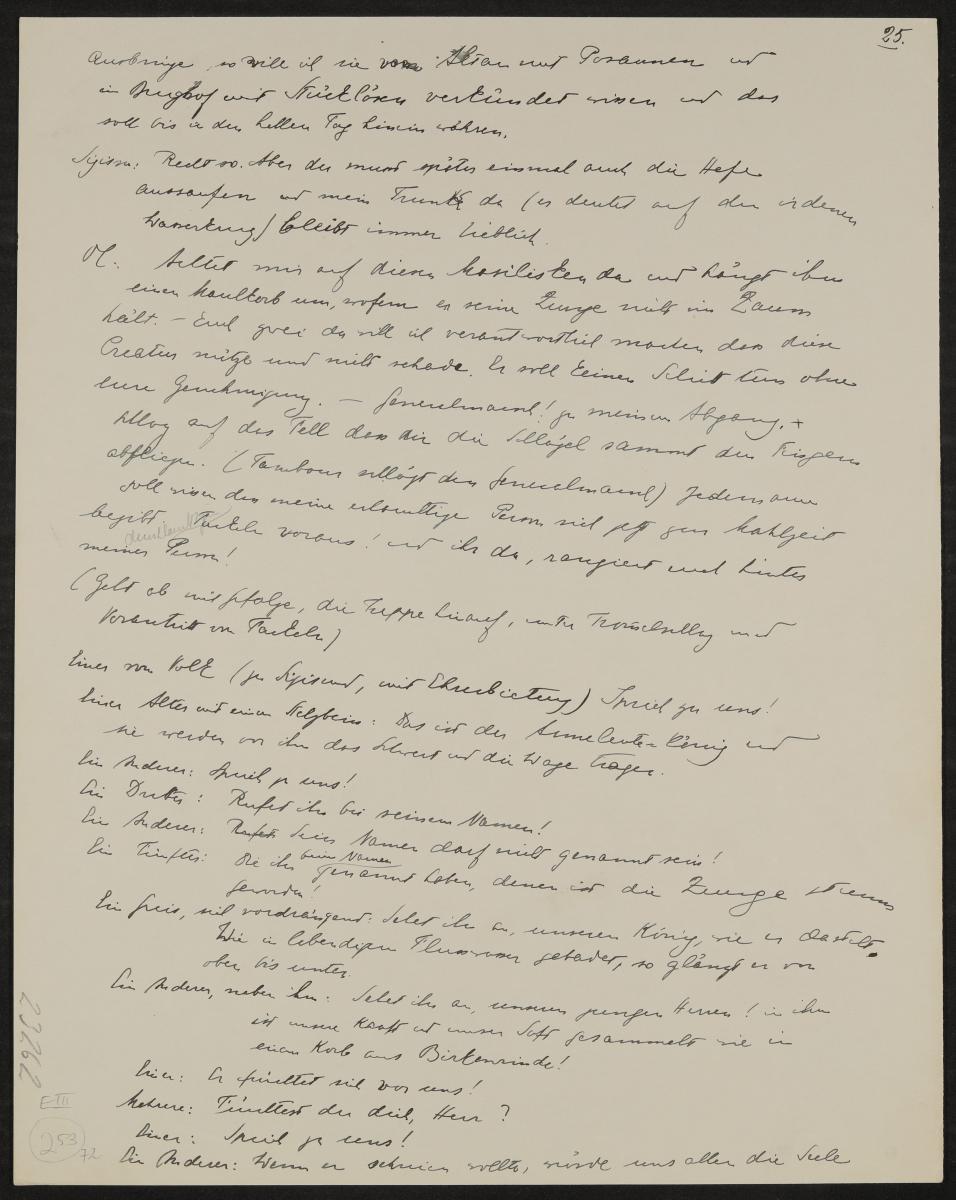 25.
ausbringe, so will ich sie vom Altan mit Posaunen und
im Burghof mit Stücklösen verkündet wissen und das
soll bis in den hellen Tag hinein währen.
Sigism: Redet so. Aber der muss später einmal auch die Hefe
aussaufen und mein Trunk da (er deutet auf den irdenen
Wasserkrug) bleibt immer lieblich.
Ol: Achtet mir auf diesen Basilisken da und hängt ihm
einen Maulkorb um, wofern er seine Zunge nicht im Zaum
hält. – Euch zwei da will ich verantwortlich machen dass diese
Creatur nütze und nicht schade. Er soll keinen Schritt tun ohne
eure Genehmigung. – Generalmarsch! zu meinem Abgang. +
Schlag auf das Fell dass dir die Schlägel sammt den Fingern
abfliegen. (Tambour schlägt den Generalmarsch) Jedermann
soll wissen dass meine erlauchtige Person sich jetzt zur Mahlzeit
begibt. Fackeln voraus! und ihr da, rangiert euch hinter
meiner Person!
(Geht ab mit Gefolge, die Treppe hinauf, unter Trommelschlag und
Vorantritt von Fackeln)
Einer vom Volk (zu Sigismund, mit Ehrerbietung) Sprich zu uns!
Einer Alter mit einem Stelzbein: Das ist der Armeleute-König und
sie werden vor ihm das Schwert und die Wage tragen.
Ein Anderer: Sprich zu uns!
Ein Dritter: Rufet ihn bei seinem Namen!
Ein Anderer: Rufet Sein Namen darf nicht genannt sein!
Ein Fünfter: Die ihn beim Namen genannt haben, denen ist die Zunge stumm
geworden!
Ein Greis, sich vordrängend: Sehet ihn an, unseren König, wie er dasteht.
Wie in lebendigem Flusswasser gebadet, so glänzt er von
oben bis unten.
Ein Anderer, neben ihm: Sehet ihn an, unseren jungen Herren! in ihm
ist unsere Kraft und unser Saft gesammelt wie in
einem Korb aus Birkenrinde!
Einer: Er fürchtet sich vor uns!
Mehrere: Fürchtest du dich, Herr?
Einer: Sprich zu uns!
Ein Anderer: Wenn er schreien wollte, würde uns allen die Seele
29262
E III
253
72